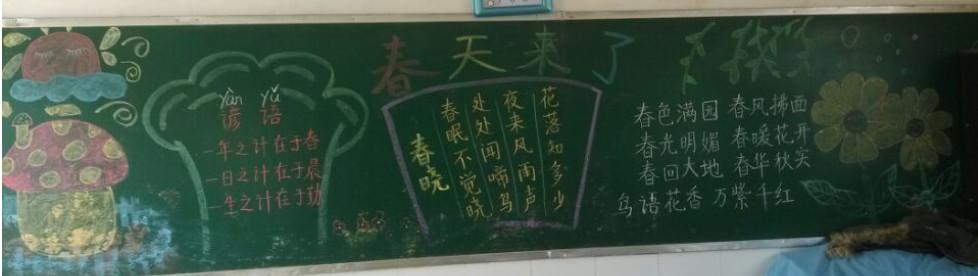 春天来了
yàn yǔ
谚语
一年之计在于春
一日之计在于晨
一生之计在于勤
春晓
春眠不觉晓
处处闻啼鸟
夜来风雨声
花落知多少
春色满园 春风拂面
春光明媚 春暖花开
春回大地 春华秋实
鸟语花香 万紫千红